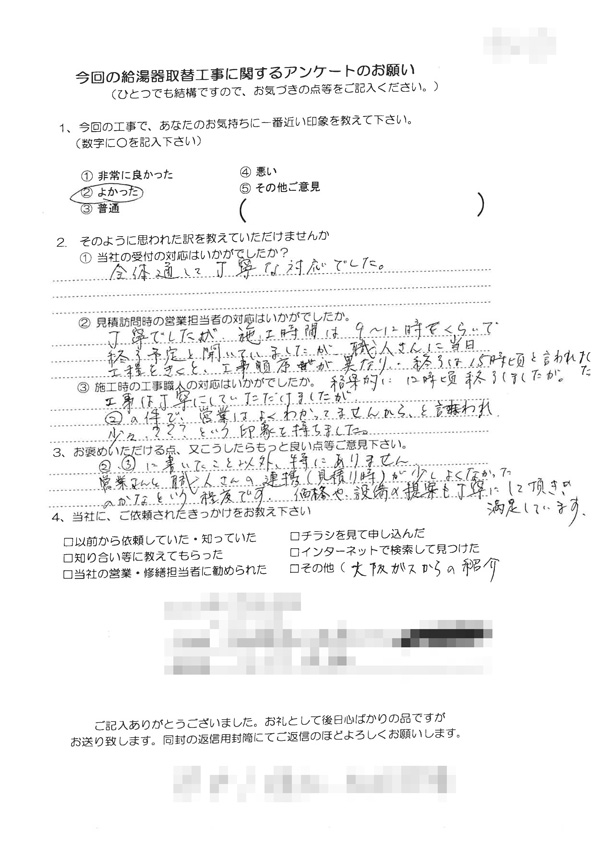 今回の給湯器取替工事に関するアンケートのお願い
（ひとつでも結構ですので、お気づきの点等をご記入ください。）
1、今回の工事で、あなたのお気持ちに一番近い印象を教えて下さい。
（数字に○を記入下さい）
① 非常に良かった
② よかった
③ 普通
④ 悪い
⑤ その他ご意見
（　　　）
2. そのように思われた訳を教えていただけませんか
① 当社の受付の対応はいかがでしたか？
全体通して丁寧な対応でした。
② 見積訪問時の営業担当者の対応はいかがでしたか。
丁寧でしたが 施工時間は 9～12時をくらいで
終る予定と聞いていましたが、職人さんに当日
工程をきくと、工事順序が異なり、終るは15時頃と言われました
③ 施工時の工事職人の対応はいかがでしたか。 結果的に 12時頃終了しましたが。
工事は丁寧にしていただけましたが
②の件で、営業はよくわかってませんから、と言われ
少々、？？？、という印象を持ちました。
3、お褒めいただける点、又こうしたらもっと良い点等ご意見下さい。
②③に書いたこと以外、特にありません
営業さんと職人さんの連携(見積り時)が少しよくなかった
のかなという程度です。 価格や設備の提案も丁寧にして頂き
満足しています。
4、当社に、ご依頼されたきっかけをお教え下さい
□以前から依頼していた・知っていた
□知り合い等に教えてもらった
□当社の営業・修繕担当者に勧められた
□チラシを見て申し込んだ
□インターネットで検索して見つけた
□その他（ 大阪ガスからの紹介
ご記入ありがとうございました。お礼として後日心ばかりの品ですが
お送り致します。同封の返信用封筒にてご返信のほどよろしくお願いします。